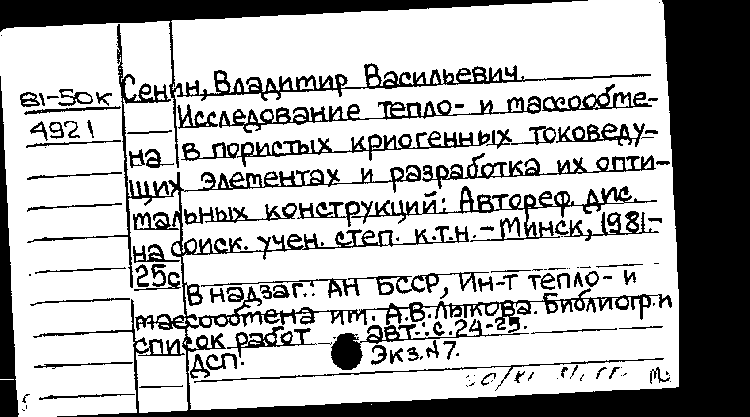 81-50к Сенин, Владимир Васильевич.
4921 Исследование тепло- и массообме-
на в пористых криогенных токоведу-
щих элементах и разработка их опти-
мальных конструкций: Автореф. дис.
на соиск. учен. степ. к.т.н. - Минск, 1981.-
25с
В надзаг.: АН БССР, Ин-т тепло- и
массообмена им. А.В. Лыкова. Библиогр. и
список работ авт.: с. 24-25.
ДСП. Экз. №7.